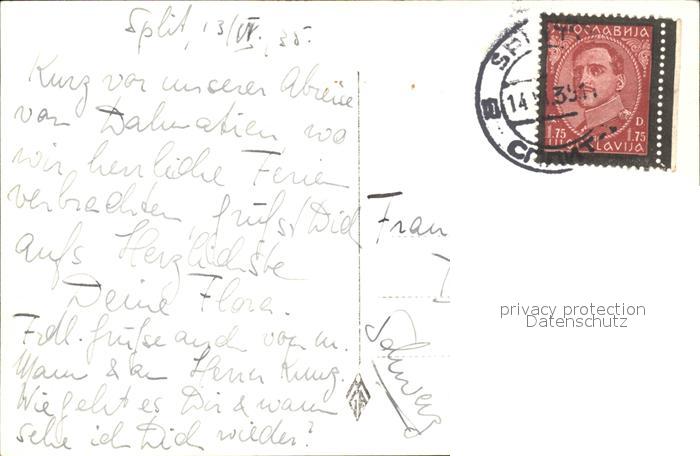 Split, 13/VI. 35.
Kurz vor unserer Abreise
von Dalmatien, wo
wir herrliche Ferien
verbrachten, grüsst Dich
aufs Herzlichste
Deine Flora.
Frdl. Grüsse auch von m.
Mann & an Herrn Kunz.
Wie geht es Dir & wann
sehe ich Dich wieder?
Frau
Schweiz
ЈУГОСЛАВИЈА
1.75 D. 1.75
JUGOSLAVIJA
SPLIT
14
СПЛИТ
privacy protection
Datenschutz